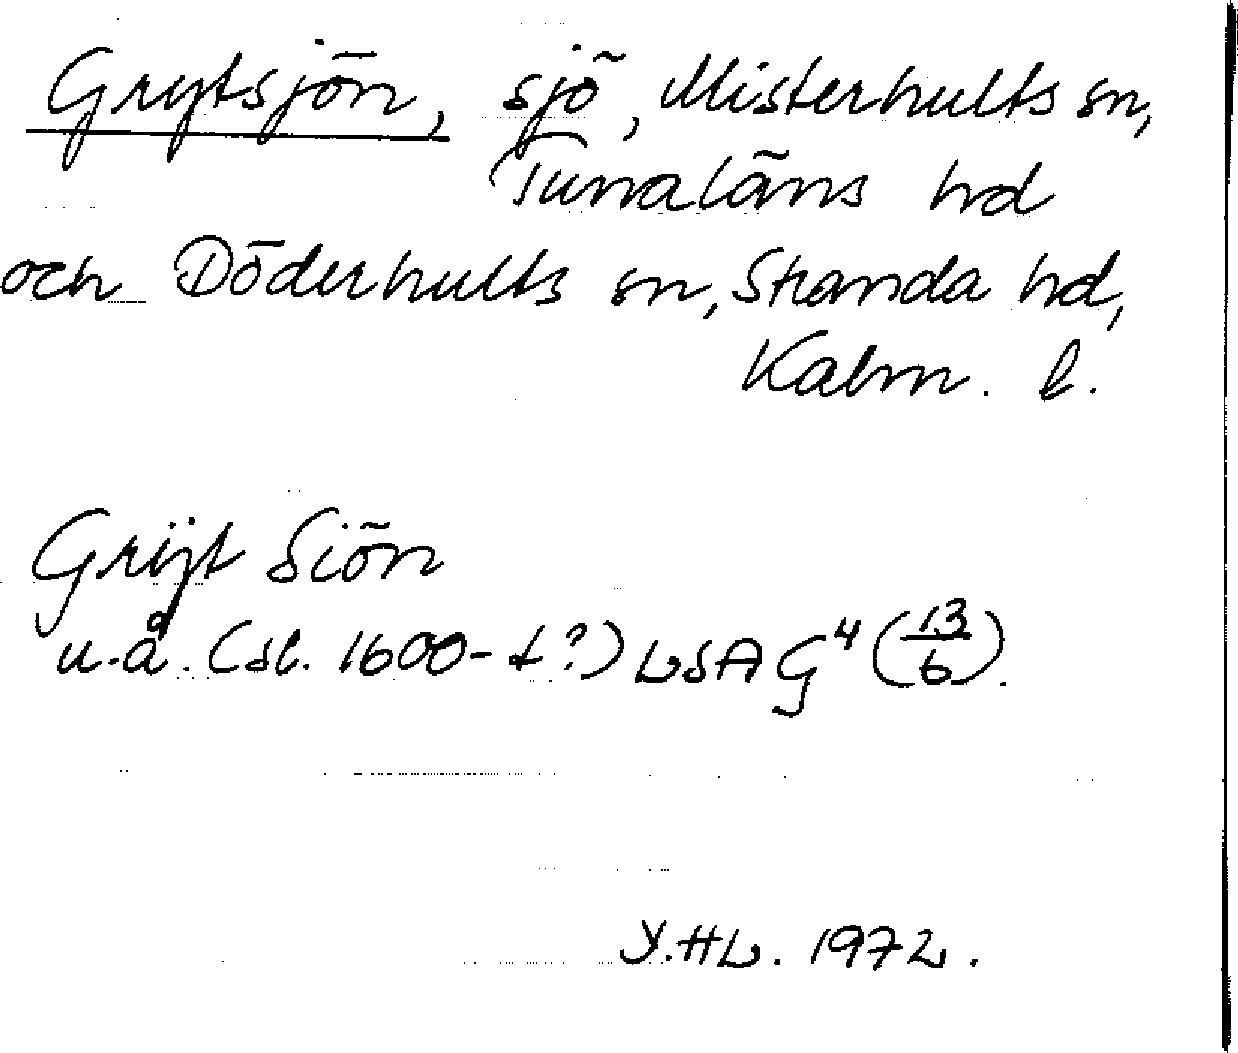 Grytsjön, sjö, Misterhults sn,
Tunaläns hd
och Döderhults sn, Stranda hd,
Kalm. l.
Grijt Siön
u.å. (sl. 1600-t?) LSA G⁴ (13/6).
Y.HL. 1972.